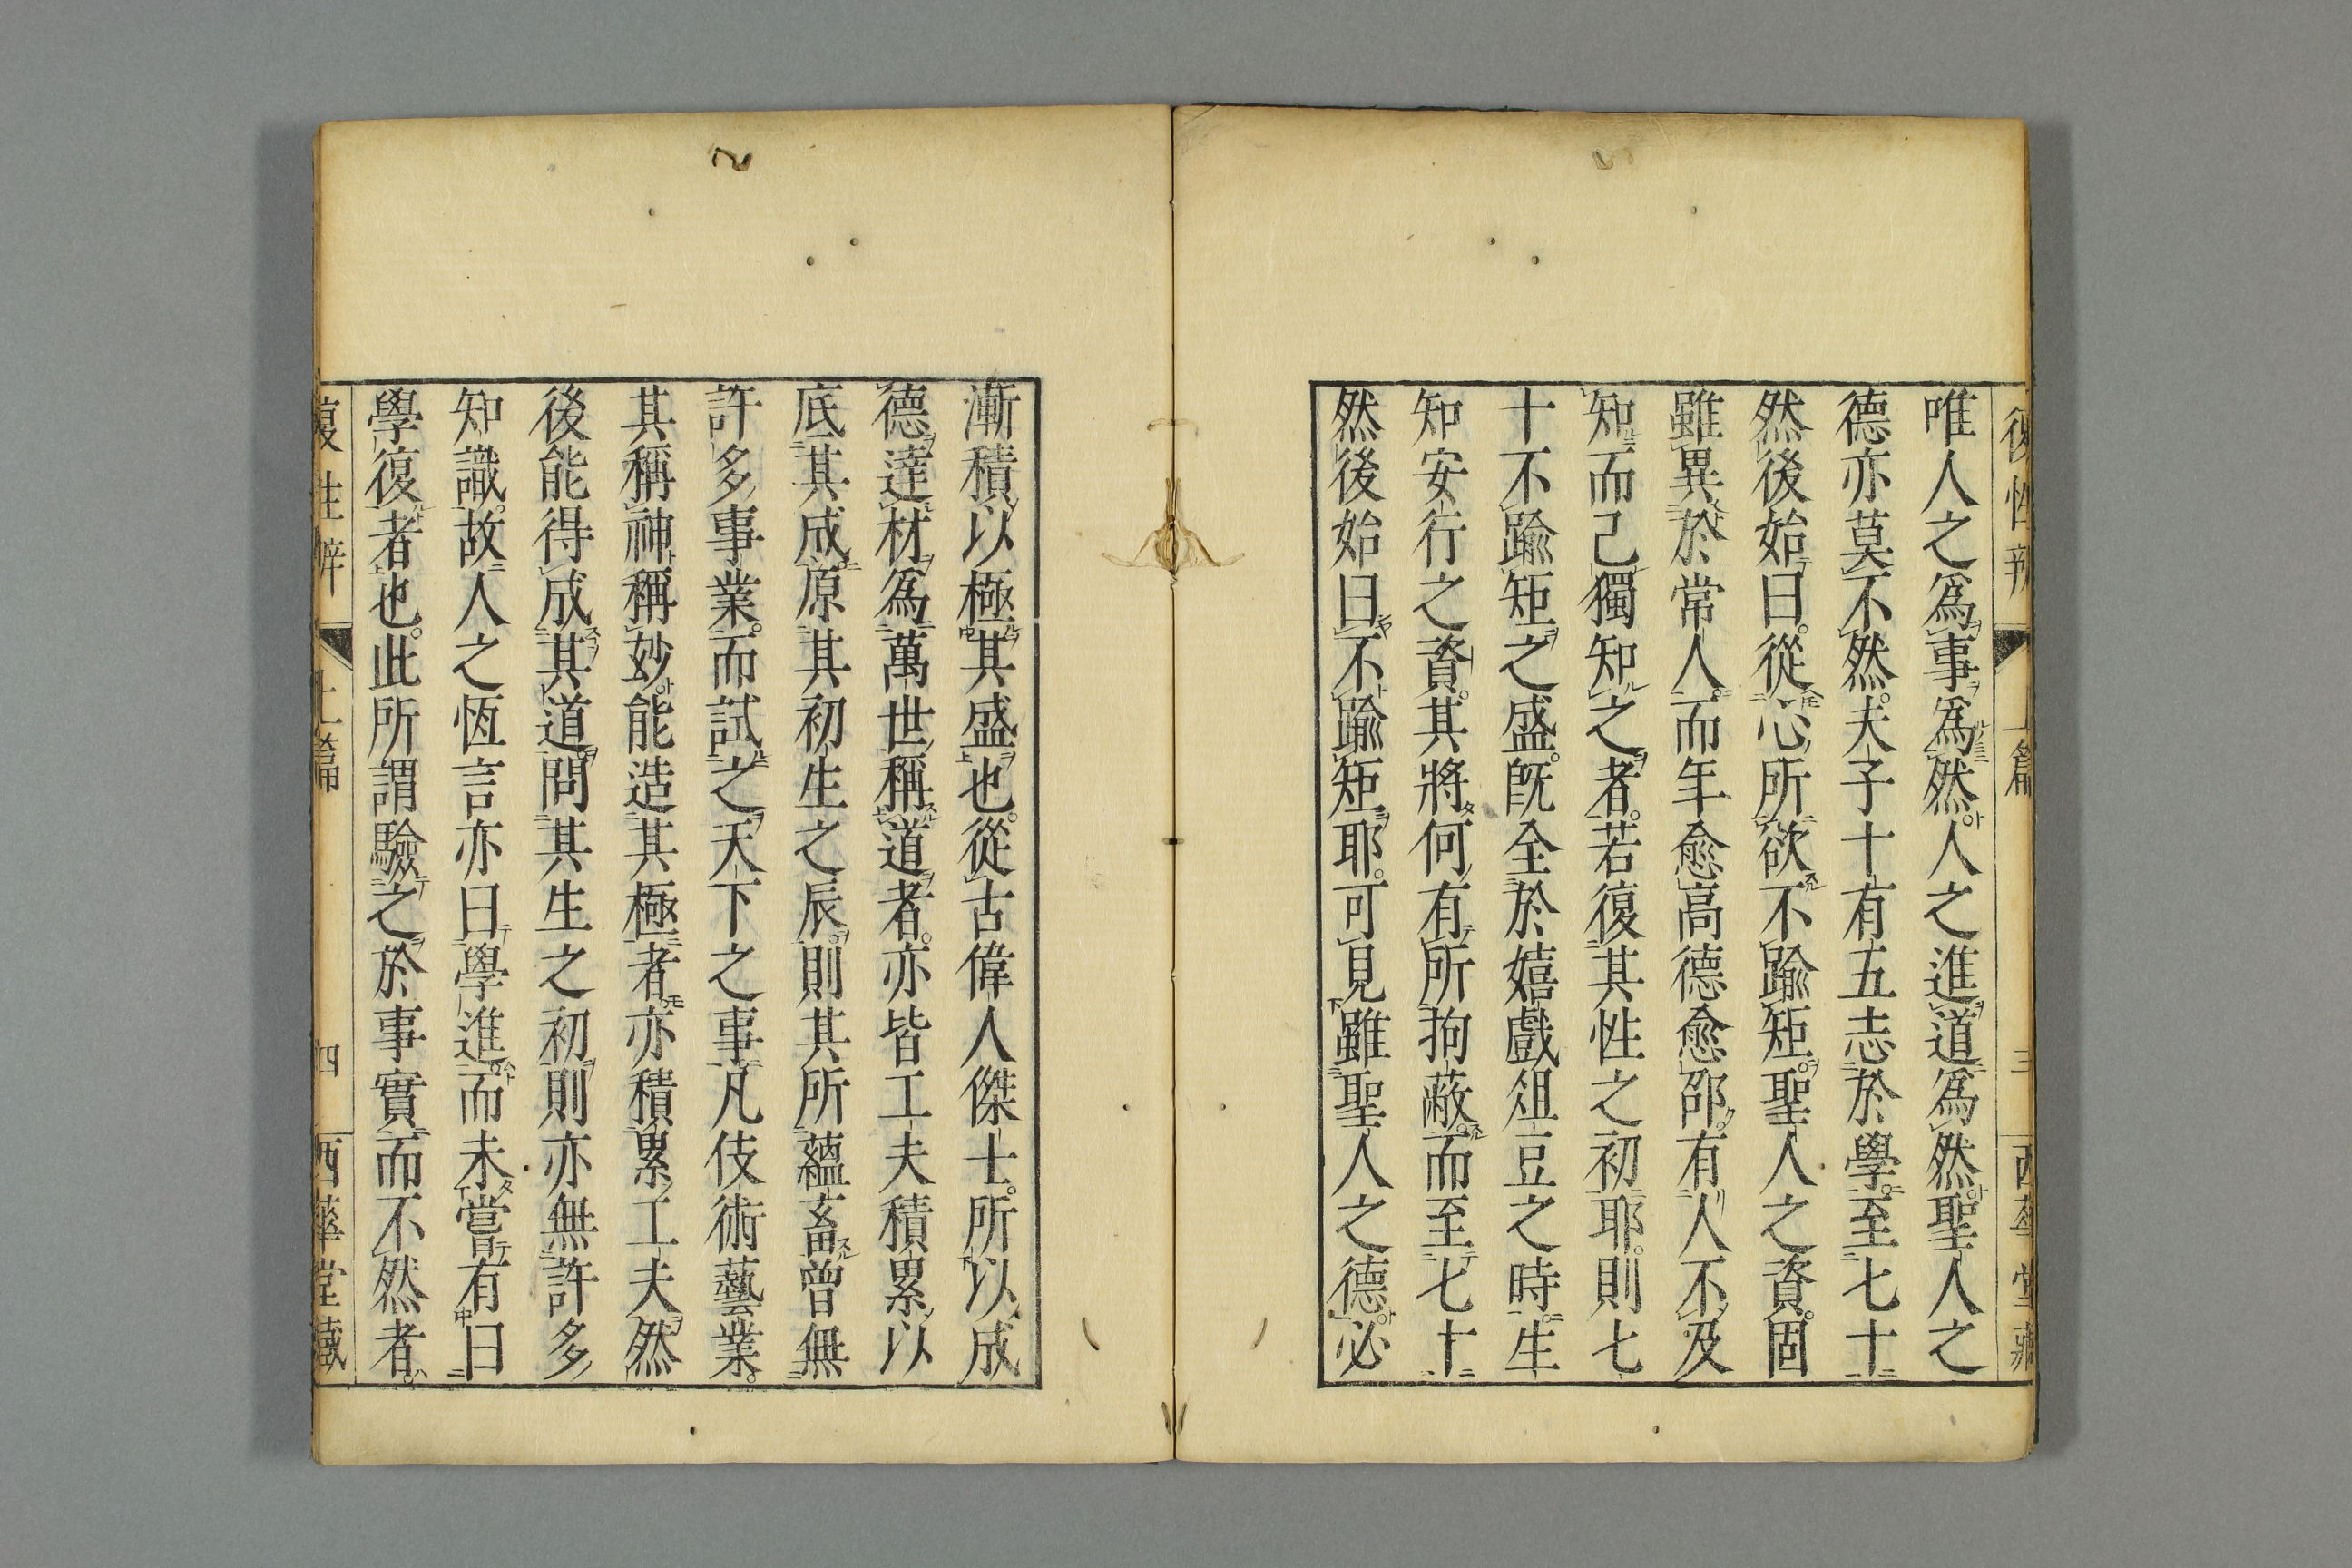 復性辨 上篇 三 西華堂藏
唯人之爲事爲然人之進道爲然聖人之
德亦莫不然。夫子十有五志於學。至七十
然後始曰。從心所欲不踰矩。聖人之資。固
雖異於常人。而年愈高德愈邵。有人不及
知而己獨知之者。若復其性之初耶。則七
十不踰矩之盛。既全於嬉戲俎豆之時。生
知安行之資。其將何有所拘蔽。而至七十
然後始曰不踰矩耶。可見雖聖人之德必
漸積以極其盛也。從古偉人傑士。所以成
德達材爲萬世稱道者。亦皆工夫積累以
底其成。原其初生之辰。則其所蘊畜曾無
許多事業。而試之天下之事。凡伎術藝業。
其稱神稱妙能造其極者。亦積累工夫然
後能得成其道。問其生之初。則亦無許多
知識。故人之恆言亦曰學進。而未嘗有曰
學復者也。此所謂驗之於事實而不然者
復性辨 上篇 四 西華堂藏